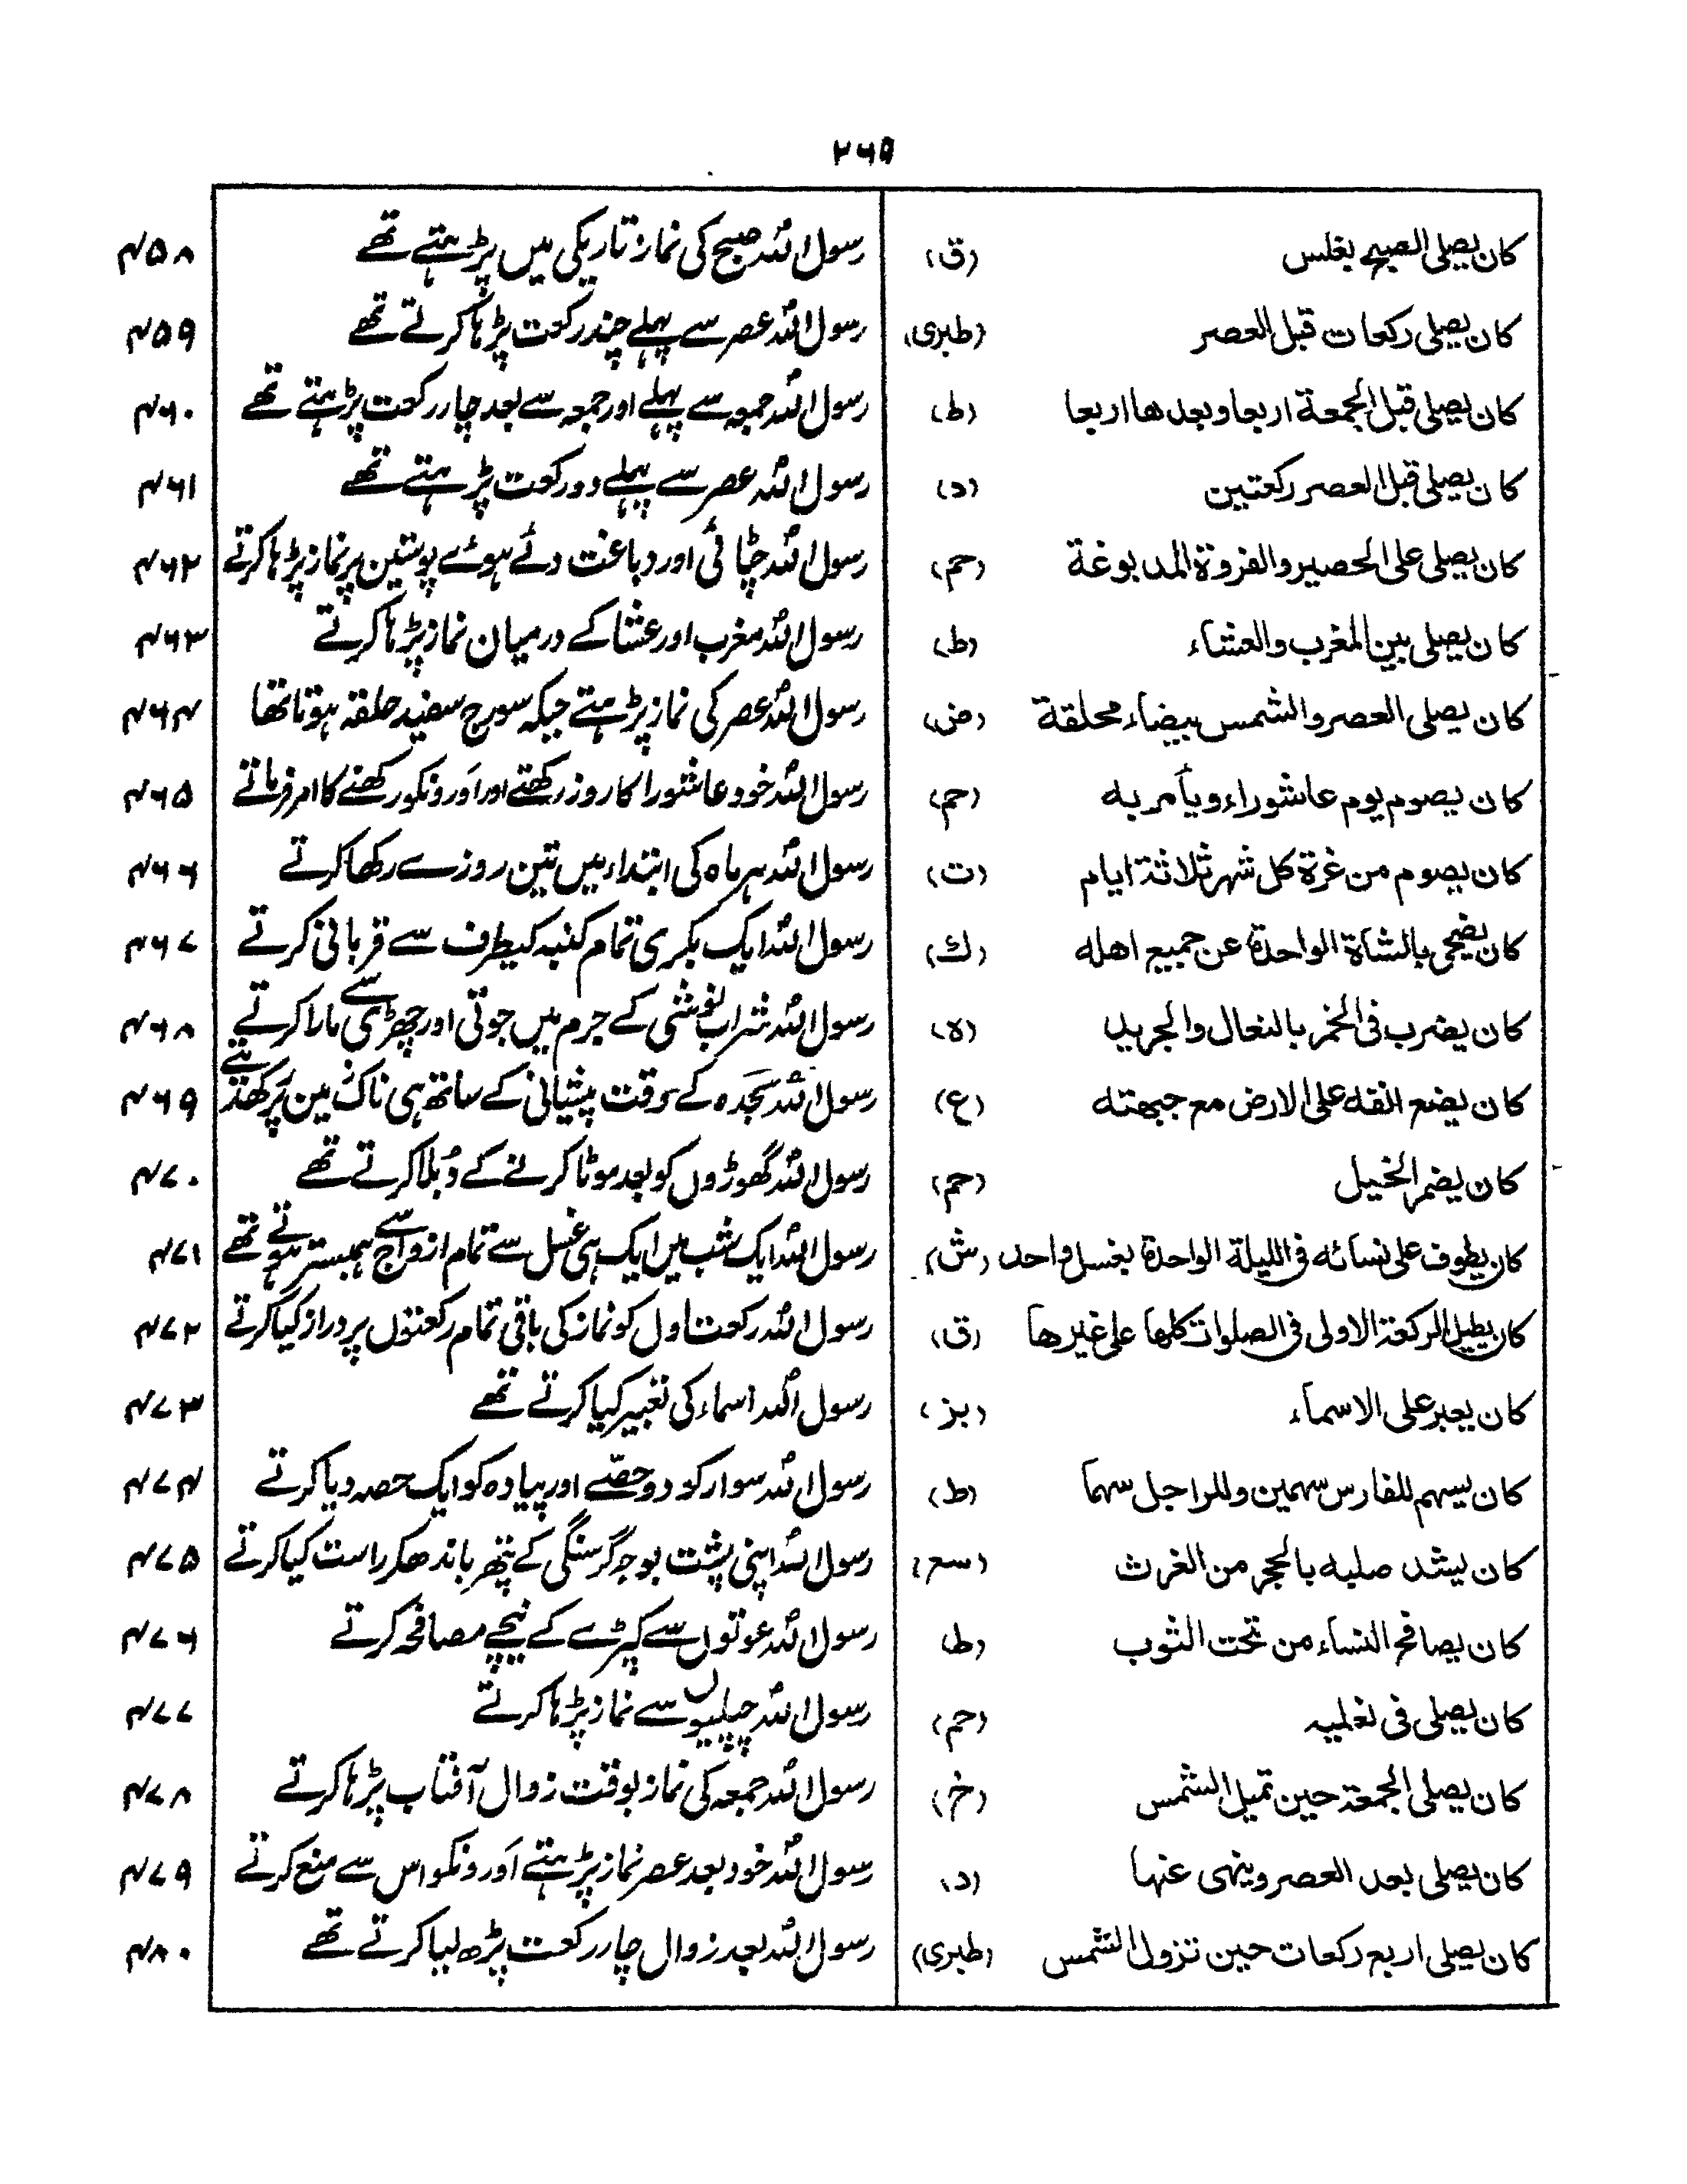 ۲۶۹
کان یصلی الصبح بغلس (ق) رسول اللہ صبح کی نماز تاریکی میں پڑہتے تھے ۴۵۸
کان یصلی رکعات قبل العصر (طبری) رسول اللہ عصر سے پہلے چند رکعت پڑہا کرتے تھے ۴۵۹
کان یصلی قبل الجمعة اربعا وبعدها اربعا (ط) رسول اللہ جمعہ سے پہلے اور جمعہ سے بعد چار رکعت پڑہتے تھے ۴۶۰
کان یصلی قبل العصر رکعتین (د) رسول اللہ عصر سے پہلے دو رکعت پڑہتے تھے ۴۶۱
کان یصلی علی الحصیر والفروة المدبوغة (حم) رسول اللہ چٹائی اور دباغت دئے ہوئے پوستین پر نماز پڑہا کرتے ۴۶۲
کان یصلی بین المغرب والعشاء (ط) رسول اللہ مغرب اور عشا کے درمیان نماز پڑہا کرتے ۴۶۳
کان یصلی العصر والشمس بیضاء محلقة (ض) رسول اللہ عصر کی نماز پڑہتے جبکہ سورج سفید حلقہ ہوتا تھا ۴۶۴
کان یصوم یوم عاشوراء ویأمر به (حم) رسول اللہ خود عاشورا کا روز رکھتے اور اَورونکو رکھنے کا امر فرماتے ۴۶۵
کان یصوم من غرة کل شهر ثلاثة ایام (ت) رسول اللہ ہر ماہ کی ابتداء میں تین روزے رکھا کرتے ۴۶۶
کان یضحی بالشاة الواحدة عن جمیع اهله (ك) رسول اللہ ایک بکری تمام کنبہ کیطرف سے قربانی کرتے ۴۶۷
کان یضرب فی الخمر بالنعال والجرید (ه) رسول اللہ شراب نوشی کے جرم میں جوتی اور چھڑی سے مارا کرتے ۴۶۸
کان یضع انفه علی الارض مع جبهته (ع) رسول اللہ سجدہ کے وقت پیشانی کے ساتھ ہی ناک زمین پر رکھتے تھے ۴۶۹
کان یضمر الخیل (حم) رسول اللہ گھوڑوں کو بعد موٹا کرنے کے دُبلا کرتے تھے ۴۷۰
کان یطوف علی نسائه فی اللیلة الواحدة بغسل واحد (ش) رسول اللہ ایک شب میں ایک ہی غسل سے تمام ازواج سے ہمبستر ہوتے تھے ۴۷۱
کان یطیل الرکعة الاولی فی الصلوات کلها علی غیرها (ق) رسول اللہ رکعت اول کو نماز کی باقی تمام رکعتوں پر دراز کیا کرتے ۴۷۲
کان یعبر علی الاسماء (بز) رسول اللہ اسماء کی تعبیر کیا کرتے تھے ۴۷۳
کان یسهم للفارس سهمین وللراجل سهما (ط) رسول اللہ سوار کو دو حصّے اور پیادہ کو ایک حصہ دیا کرتے ۴۷۴
کان یشد صلبه بالحجر من الغرث (سع) رسول اللہ اپنی پشت بوجہ گرسنگی کے پتھر باندھکر راست کیا کرتے ۴۷۵
کان یصافح النساء من تحت الثوب (ط) رسول اللہ عوتوں سے کپڑے کے نیچے مصافحہ کرتے ۴۷۶
کان یصلی فی نعلیه (حم) رسول اللہ چپلیوں سے نماز پڑہا کرتے ۴۷۷
کان یصلی الجمعة حین تمیل الشمس (خ) رسول اللہ جمعہ کی نماز بوقت زوال آفتاب پڑہا کرتے ۴۷۸
کان یصلی بعد العصر وینهی عنها (د) رسول اللہ خود بعد عصر نماز پڑہتے اَورونکو اس سے منع کرتے ۴۷۹
کان یصلی اربع رکعات حین تزول الشمس (طبری) رسول اللہ بعد زوال چار رکعت پڑھ لیا کرتے تھے ۴۸۰